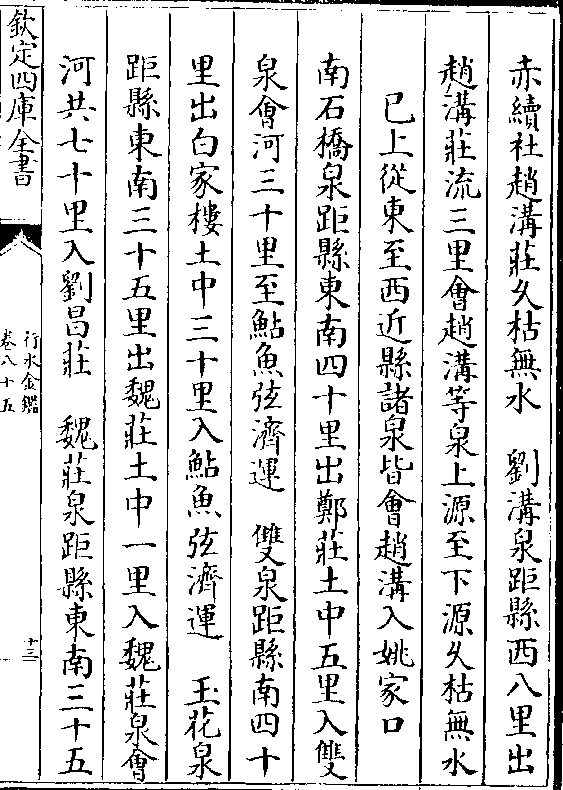 赤續社趙溝莊久枯無水　劉溝泉距縣西八里出
趙溝莊流三里會趙溝等泉上源至下源久枯無水
已上從東至西近縣諸泉皆會趙溝入姚家口
南石橋泉距縣東南四十里出鄭莊土中五里入雙
泉會河三十里至鮎魚弦濟運　雙泉距縣南四十
里出白家樓土中三十里入鮎魚弦濟運　玉花泉
距縣東南三十五里出魏莊土中一里入魏莊泉會
河共七十里入劉昌莊　魏莊泉距縣東南三十五
欽定四庫全書
行水金鑑
卷八十五
十三